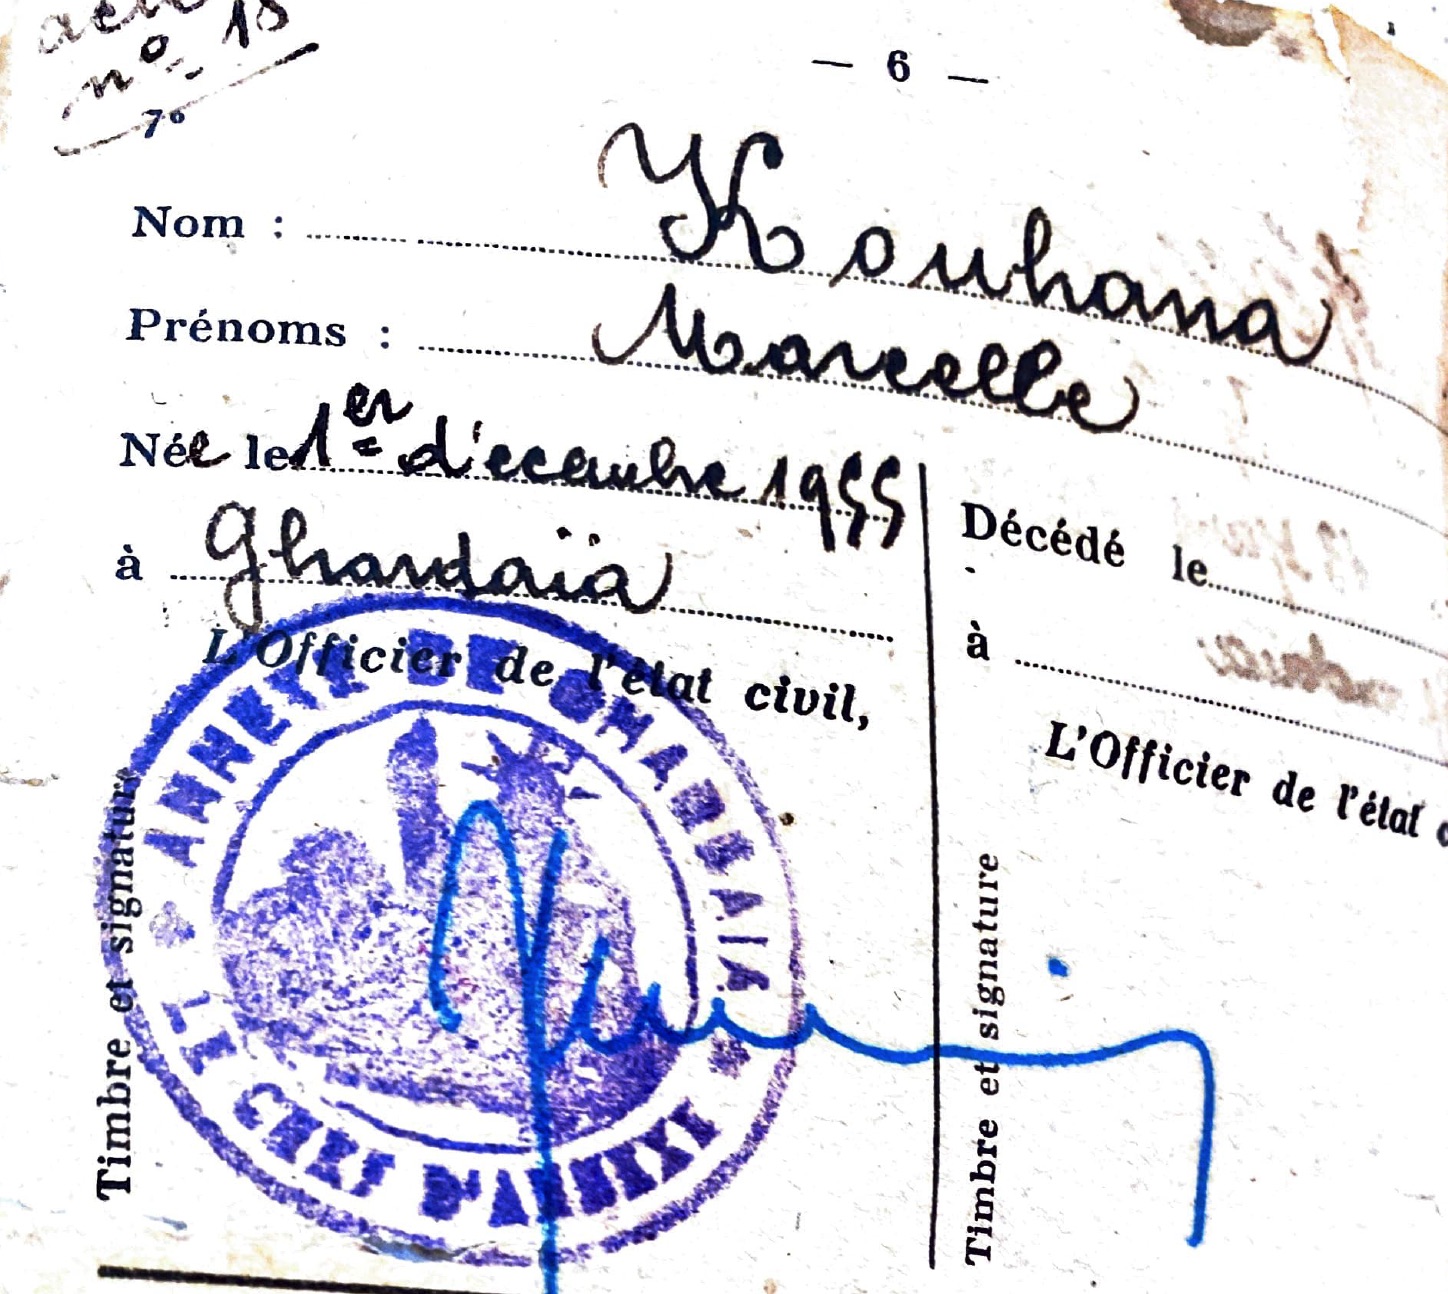 acte
nº 18
— 6 —
7º
Nom : Kouhana
Prénoms : Marcelle
Née le 1er décembre 1955
à Ghardaïa
L'Officier de l'état civil,
Timbre et signature
ANNEXE DE GHARDAIA
LE CHEF D'ANNEXE
Décédé le
à
L'Officier de l'état c
Timbre et signature